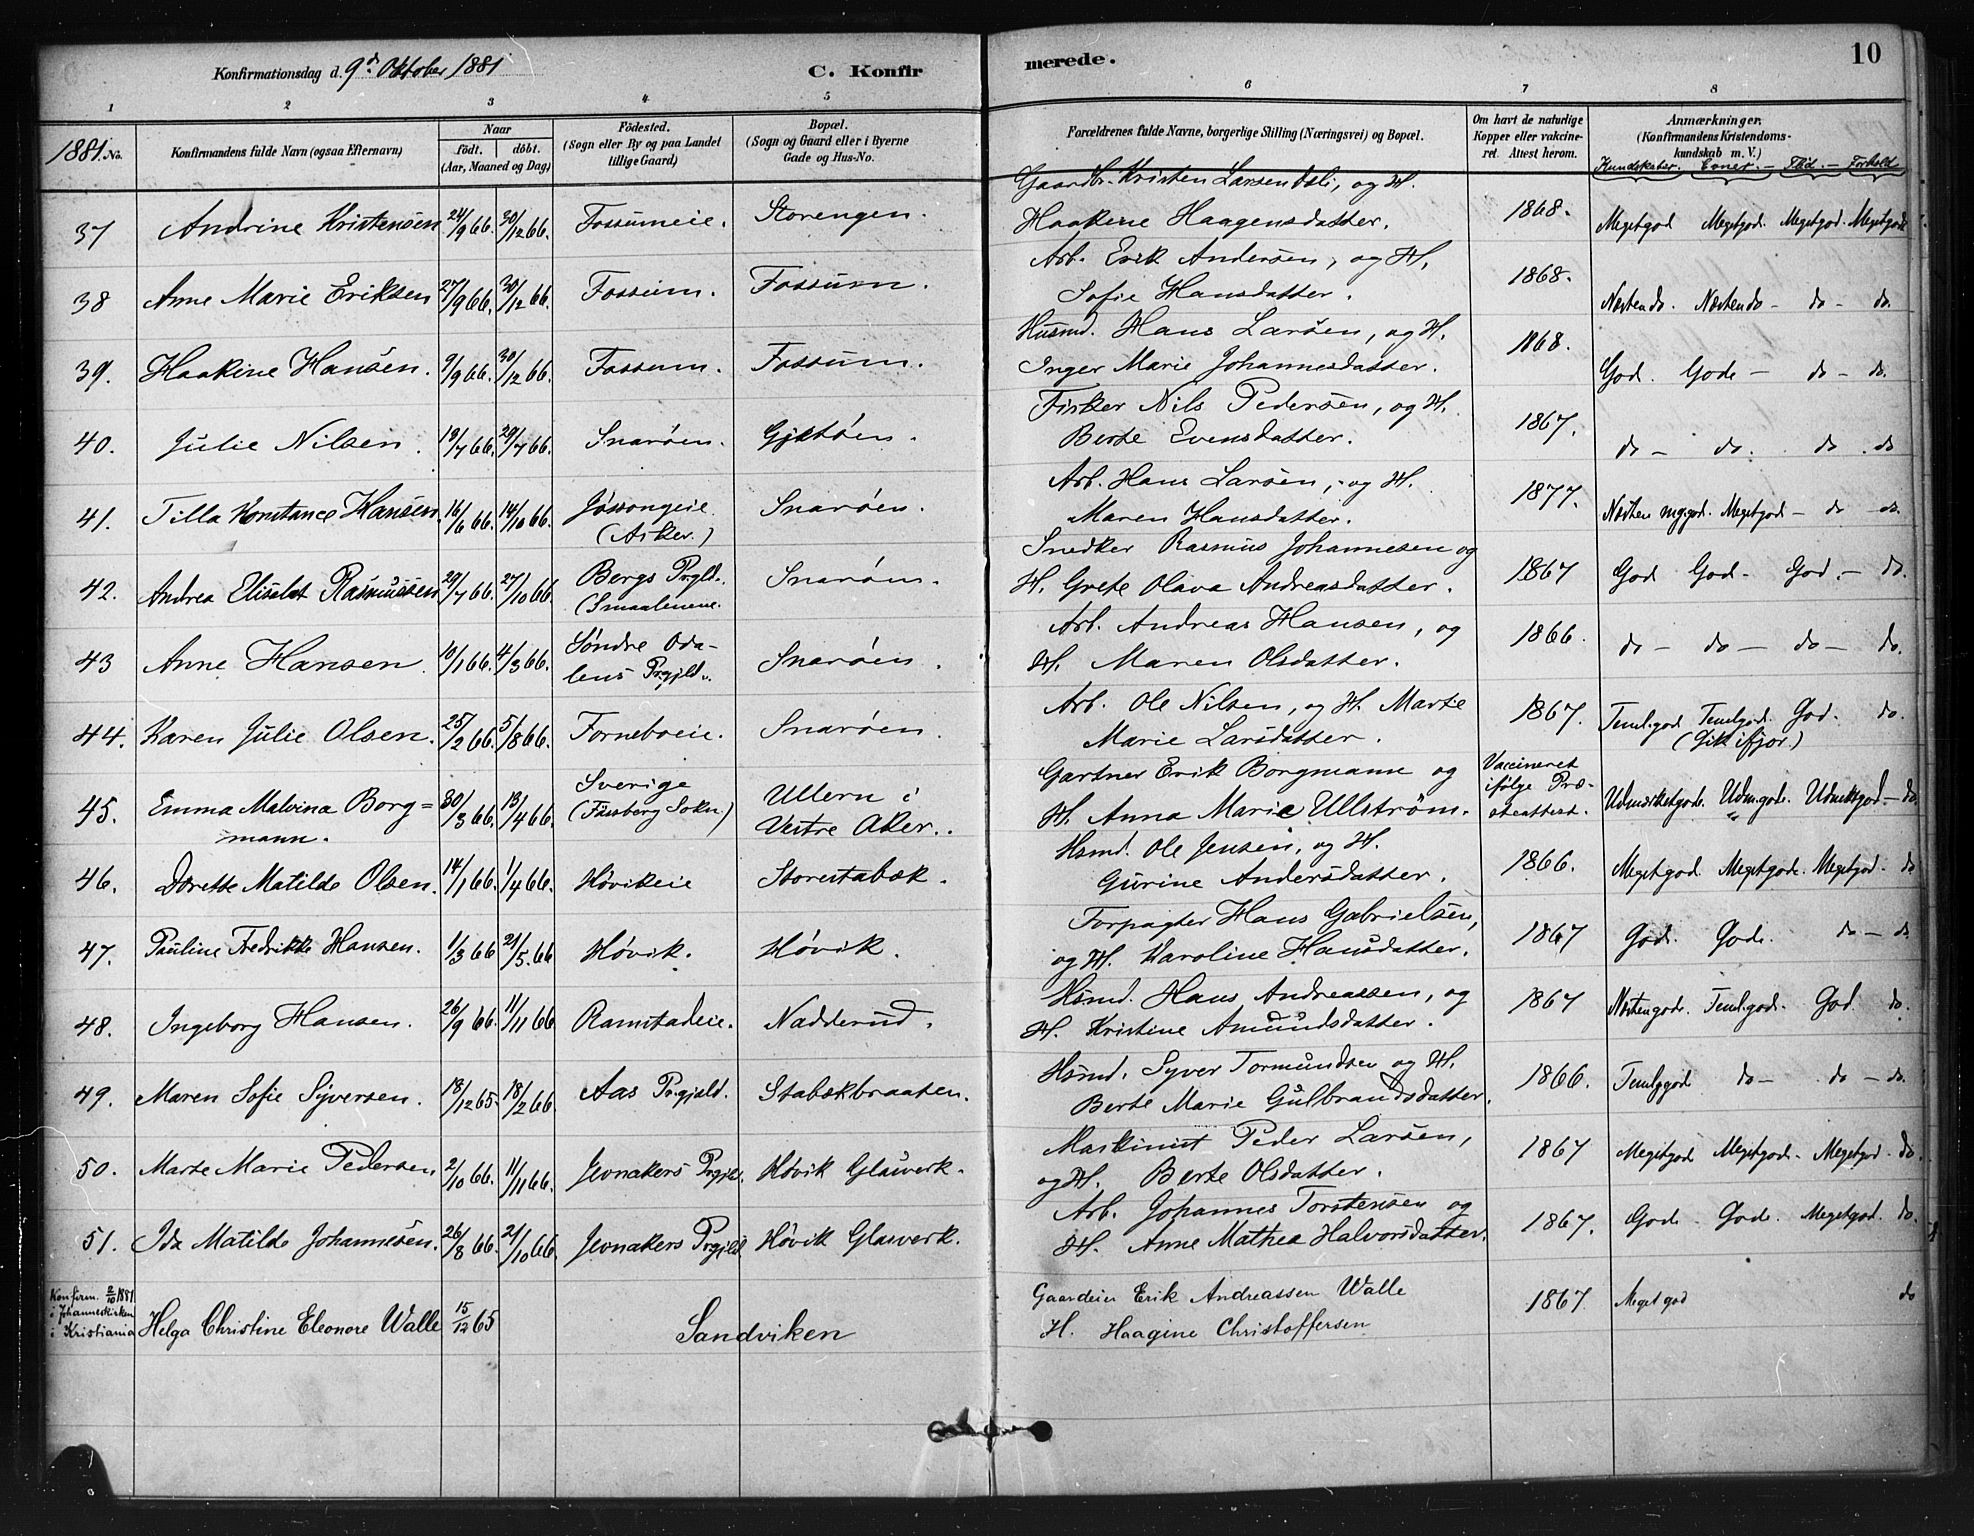 Konfirmationsdag d. 9d. Oktober 1881 C. Konfir
merede. 10
1 2 3 4 5 6 7 8
1881. No. Konfirmandens fulde Navn (ogsaa Efternavn) Naar födt. döbt. (Aar, Maaned og Dag) Födested. (Sogn eller By og paa Landet tillige Gaard) Bopæl. (Sogn og Gaard eller i Byerne Gade og Hus-No.
Forældrenes fulde Navne, borgerlige Stilling (Næringsvei) og Bopæl. Om havt de naturlige Kopper eller vakcineret. Attest herom. Anmærkninger. (Konfirmandens Kristendomskundskab m. V.)
Kundskaber. Evner. — Flid. — Forhold
37 Andrine Kristensen 24/9 66. 30/12 66. Fossumeie. Storengen. Gaardbr. Kristen Larsen, og H.
Haakene Haagensdatter. 1868. Megetgod Megetgod. Megetgod. Megetgodt
38 Anne Marie Eriksen 27/9 66. 30/12 66. Fossum. Fossum. Arb. Erik Andersen, og H.
Sofie Hansdatter. 1868. Næsten do. Næsten do — do — do.
39. Haakine Hansen. 9/9 66. 30/12 66. Fossum. Fossum. Husmd. Hans Larsen, og H.
Inger Marie Johannesdatter. 1868. God. Gode — do — do.
40. Julie Nilsen. 19/7 66. 29/7 66. Snarøen. Gjetøen. Fisker Nils Pedersen, og H.
Berte Evensdatter. 1867. do — do. do . do
41. Tilla Konstance Hansen. 16/6 66. 14/10 66. Jøssongeie
(Asker.) Snarøen. Arb. Hans Larsen, og H.
Maren Hansdatter. 1877. Næsten mg.god. Megetgod — do — do.
42. Andrea Elisabet Rasmussen 29/7 66. 27/10 66. Bergs Prgld.
(Smaalenene. Snarøen. Snedker Rasmus Johannesen og
H. Grete Olava Andreasdatter. 1867 God God — God. — do.
43 Anne Hansen. 10/1 66. 4/3 66. Søndre Oda-
lens Prgjld. Snarøen. Arb. Andreas Hansen, og
H. Maren Olsdatter. 1866. do — do — do — do.
44. Karen Julie Olsen. 25/2 66. 5/8 66. Forneboeie. Snarøen. Arb. Ole Nilsen, og H. Marte
Marie Larsdatter. 1867. Teml.god Temlgod. God. do.
(Gik ifjor.)
45. Emma Malvina Borg=
mann. 30/3 66. 13/4 66. Sverige
(Fässberg Sokn.) Ullern i
Vestre Aker. Gartner Erik Borgmann og
H. Anna Marie Ullstrøm. Vaccineret
ifølge Præ-
steattest. Udmærketgode. Udm.god. Udmærketgod — do
46. Dorette Matilde Olsen. 14/1 66. 1/4 66. Høvikeie Storestabæk. Hsmd. Ole Jensen, og H.
Gurine Andersdatter. 1866. Megetgod. Megetgode. Megetgod — do
47. Pauline Fredrikke Hansen. 1/3 66 21/5 66 Høvik. Høvik. Forpagter Hans Gabrielsen,
og H. Karoline Hansdatter. 1867 Gode. Gode. do — do
48. Ingeborg Hansen. 26/9 66. 11/11 66 Ramstadeie. Nadderud. Hsmd. Hans Andreassen, og
H. Kristine Amundsdatter. 1867 Næstengode. Teml.gode. God. do.
49. Maren Sofie Syversen. 13/12 65. 18/2 66. Aas Prgjæld. Stabækbraaten. Hsmd. Syver Tormundsen og H.
Berte Marie Gulbrandsdatter. 1866. Temlggod do — do — do.
50. Marte Marie Pedersen 2/10 66. 11/11 66. Jevnakers Prgjld. Høvik Glasverk. Maskinist Peder Larsen,
og H. Berte Olsdatter. 1867 Megetgode Megetgode. Megetgod — do.
51. Ida Matilde Johannesen. 26/8 66. 21/10 66 Jevnakers Prgjld Høvik Glasverk. Arb. Johannes Torstensen og
H. Anne Mathea Halvorsdatter. 1867. Gode Gode. Megetgod. do.
Konfirm. 2/10 1881.
i Johanneskirken
i Kristiania Helga Christine Eleonore Walle 15/12 65 Sandviken Gaardeier Erik Andreassen Walle
H. Haagine Christoffersen 1867. Meget god do